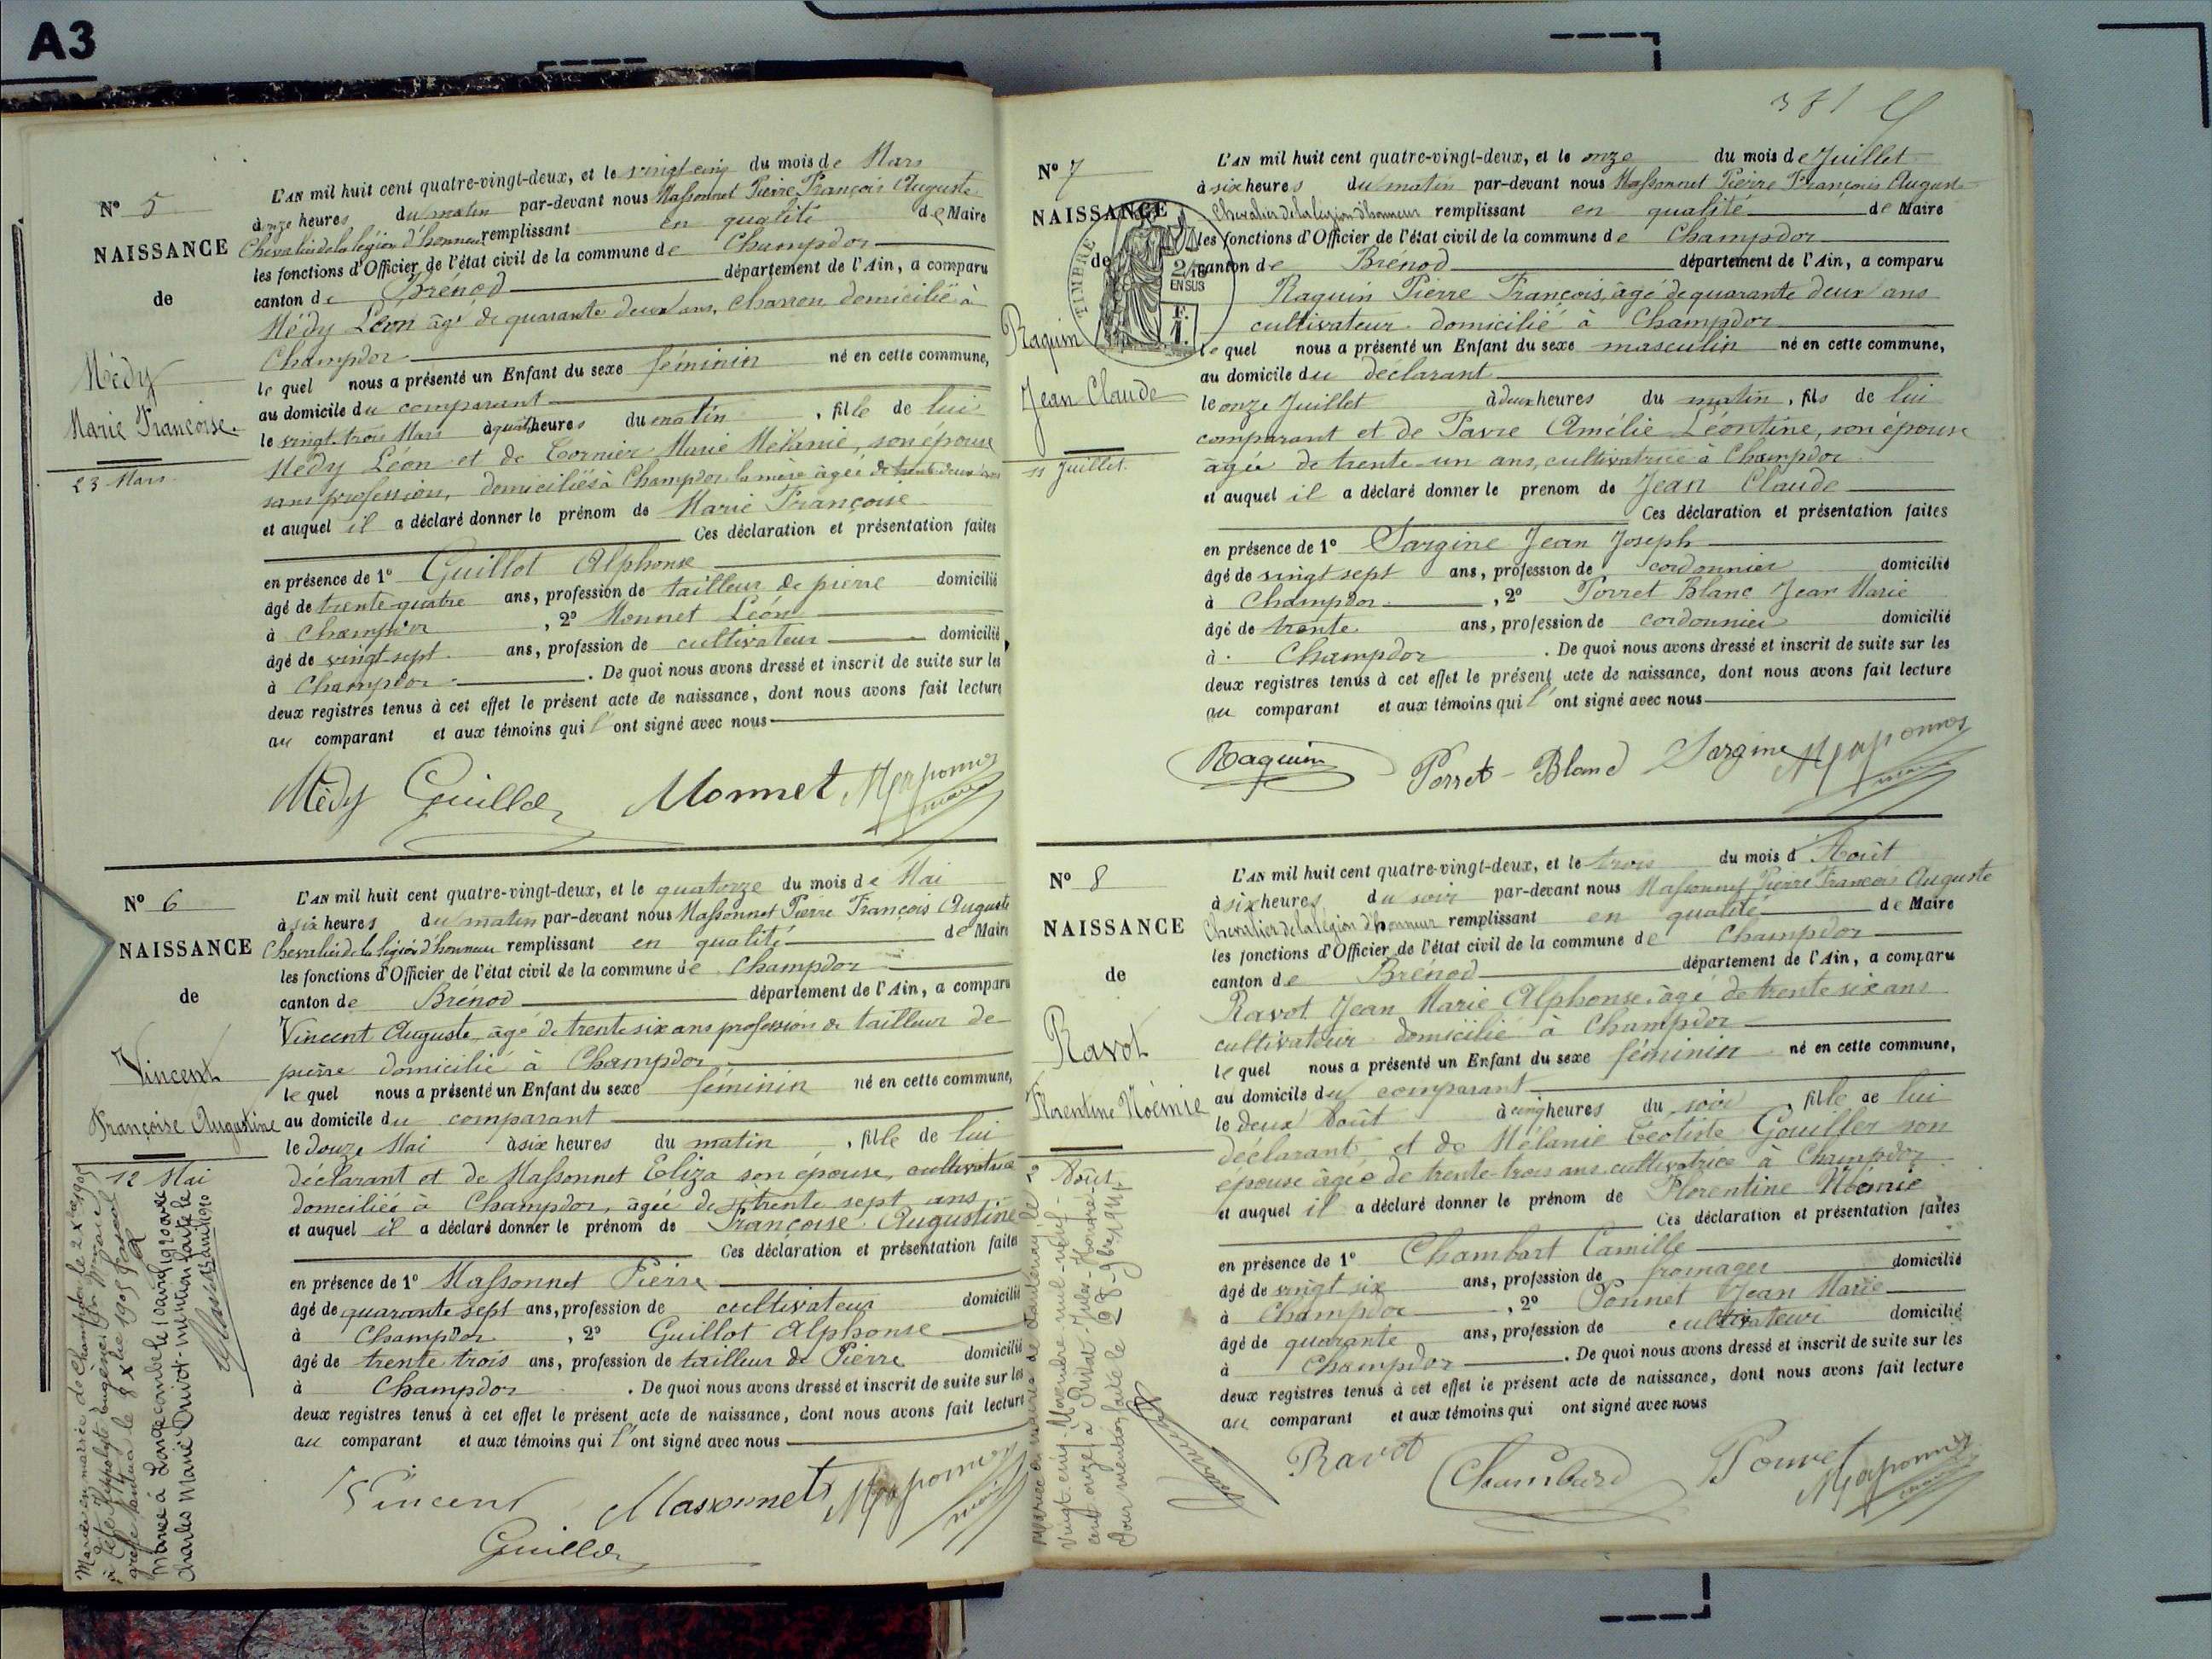 A3
N° 5
NAISSANCE
de
Médy
Marie Françoise
23 Mars
L'AN mil huit cent quatre-vingt-deux, et le vingt cinq du mois de Mars
à onze heures du matin par-devant nous Massonnet Pierre François Auguste
Chevalier de la légion d'honneur remplissant en qualité de Maire
les fonctions d'Officier de l'état civil de la commune de Champdor
canton de Brénod département de l'Ain, a comparu
Médy Léon âgé de quarante deux ans, charron domicilié à
Champdor
lequel nous a présenté un Enfant du sexe féminin né en cette commune,
au domicile du comparant
le vingt trois Mars à quatre heures du matin, fille de lui
Médy Léon et de Cornier Marie Mélanie, son épouse
sans profession, domiciliés à Champdor la mère âgée de trente deux ans
et auquel il a déclaré donner le prénom de Marie Françoise
Ces déclaration et présentation faites
en présence de 1° Guillot Alphonse
âgé de trente quatre ans, profession de tailleur de pierre domicilié
à Champdor, 2° Monnet Léon
âgé de vingt-sept ans, profession de cultivateur domicilié
à Champdor. De quoi nous avons dressé et inscrit de suite sur les
deux registres tenus à cet effet le présent acte de naissance, dont nous avons fait lecture
au comparant et aux témoins qui l'ont signé avec nous
Médy Guillot Monnet Massonnet
maire
N° 6
NAISSANCE
de
Vincent
Françoise Augustine
12 Mai
L'AN mil huit cent quatre-vingt-deux, et le quatorze du mois de Mai
à six heures du matin par-devant nous Massonnet Pierre François Auguste
Chevalier de la légion d'honneur remplissant en qualité de Maire
les fonctions d'Officier de l'état civil de la commune de Champdor
canton de Brénod département de l'Ain, a comparu
Vincent Auguste, âgé de trente six ans profession de tailleur de
pierre domicilié à Champdor
lequel nous a présenté un Enfant du sexe féminin né en cette commune,
au domicile du comparant
le douze Mai à six heures du matin, fille de lui
déclarant et de Massonnet Eliza son épouse, cultivatrice
domiciliée à Champdor, âgée de trente sept ans
et auquel il a déclaré donner le prénom de Françoise Augustine
Ces déclaration et présentation faites
en présence de 1° Massonnet Pierre
âgé de quarante sept ans, profession de cultivateur domicilié
à Champdor, 2° Guillot Alphonse
âgé de trente trois ans, profession de tailleur de Pierre domicilié
à Champdor. De quoi nous avons dressé et inscrit de suite sur les
deux registres tenus à cet effet le présent acte de naissance, dont nous avons fait lecture
au comparant et aux témoins qui l'ont signé avec nous
Vincent Massonnet Massonnet
maire
Guillot
Mariée en mairie de Champdor le 2 Xbre 1905
Mariée à Longecombe le 1 avril 1910 avec
Charles Marie Drivot - mention faite le
13 avril 1910
381
N° 7
NAISSANCE
de
Raquin
Jean Claude
11 Juillet
TIMBRE
2/10
EN SUS
F.
1.
L'AN mil huit cent quatre-vingt-deux, et le onze du mois de Juillet
à six heures du matin par-devant nous Massonnet Pierre François Auguste
Chevalier de la légion d'honneur remplissant en qualité de Maire
les fonctions d'Officier de l'état civil de la commune de Champdor
canton de Brénod département de l'Ain, a comparu
Raquin Pierre François, âgé de quarante deux ans
cultivateur domicilié à Champdor
lequel nous a présenté un Enfant du sexe masculin né en cette commune,
au domicile du déclarant
le onze Juillet à deux heures du matin, fils de lui
comparant et de Favre Amélie Léontine, son épouse
âgée de trente-un ans, cultivatrice à Champdor
et auquel il a déclaré donner le prenom de Jean Claude
Ces déclaration et présentation faites
en présence de 1° Sargine Jean Joseph
âgé de vingt sept ans, profession de cordonnier domicilié
à Champdor, 2° Porret Blanc Jean Marie
âgé de trente ans, profession de cordonnier domicilié
à Champdor. De quoi nous avons dressé et inscrit de suite sur les
deux registres tenus à cet effet le présent acte de naissance, dont nous avons fait lecture
au comparant et aux témoins qui l'ont signé avec nous
Raquin Perret-Blanc Sargine Massonnet
maire
N° 8
NAISSANCE
de
Ravot
Florentine Noémie
2 Août
L'AN mil huit cent quatre-vingt-deux, et le trois du mois d'Août
à six heures du soir par-devant nous Massonnet Pierre François Auguste
Chevalier de la légion d'honneur remplissant en qualité de Maire
les fonctions d'Officier de l'état civil de la commune de Champdor
canton de Brénod département de l'Ain, a comparu
Ravot Jean Marie Alphonse, âgé de trente six ans
cultivateur domicilié à Champdor
lequel nous a présenté un Enfant du sexe féminin né en cette commune,
au domicile du comparant
le deux Août à cinq heures du soir, fille de lui
déclarant, et de Mélanie Géotiste Gouiller son
épouse âgée de trente-trois ans cultivatrice à Champdor
et auquel il a déclaré donner le prénom de Florentine Noémie
Ces déclaration et présentation faites
en présence de 1° Chambart Camille
âgé de vingt six ans, profession de fromager domicilié
à Champdor, 2° Ponnet Jean Marie
âgé de quarante ans, profession de cultivateur domicilié
à Champdor. De quoi nous avons dressé et inscrit de suite sur les
deux registres tenus à cet effet le présent acte de naissance, dont nous avons fait lecture
au comparant et aux témoins qui ont signé avec nous
Ravot Chambard Ponnet Massonnet
maire
vingt-cinq Novembre mil-neuf-
cent onze, à Privat-Jules-Honoré
Pour mention faite le 28-9bre 1911